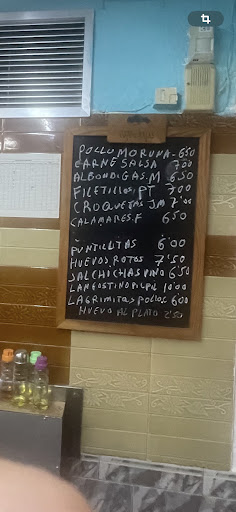 POLLO MORUNA - 6'50
CARNE SALSA 7'00
ALBONDIGAS.M 6'50
FILETILLOS.PT 7'00
CROQUETAS JM 7'00
CALAMARES.F 6'50
PUNTILLITAS 6'00
HUEVOS.ROTOS 7'50
SALCHICHAS VINO 6'50
LANGOSTINO PILPIL 10'00
LAGRIMITAS POLLOS 6'00
HUEVO AL PLATO 2'50